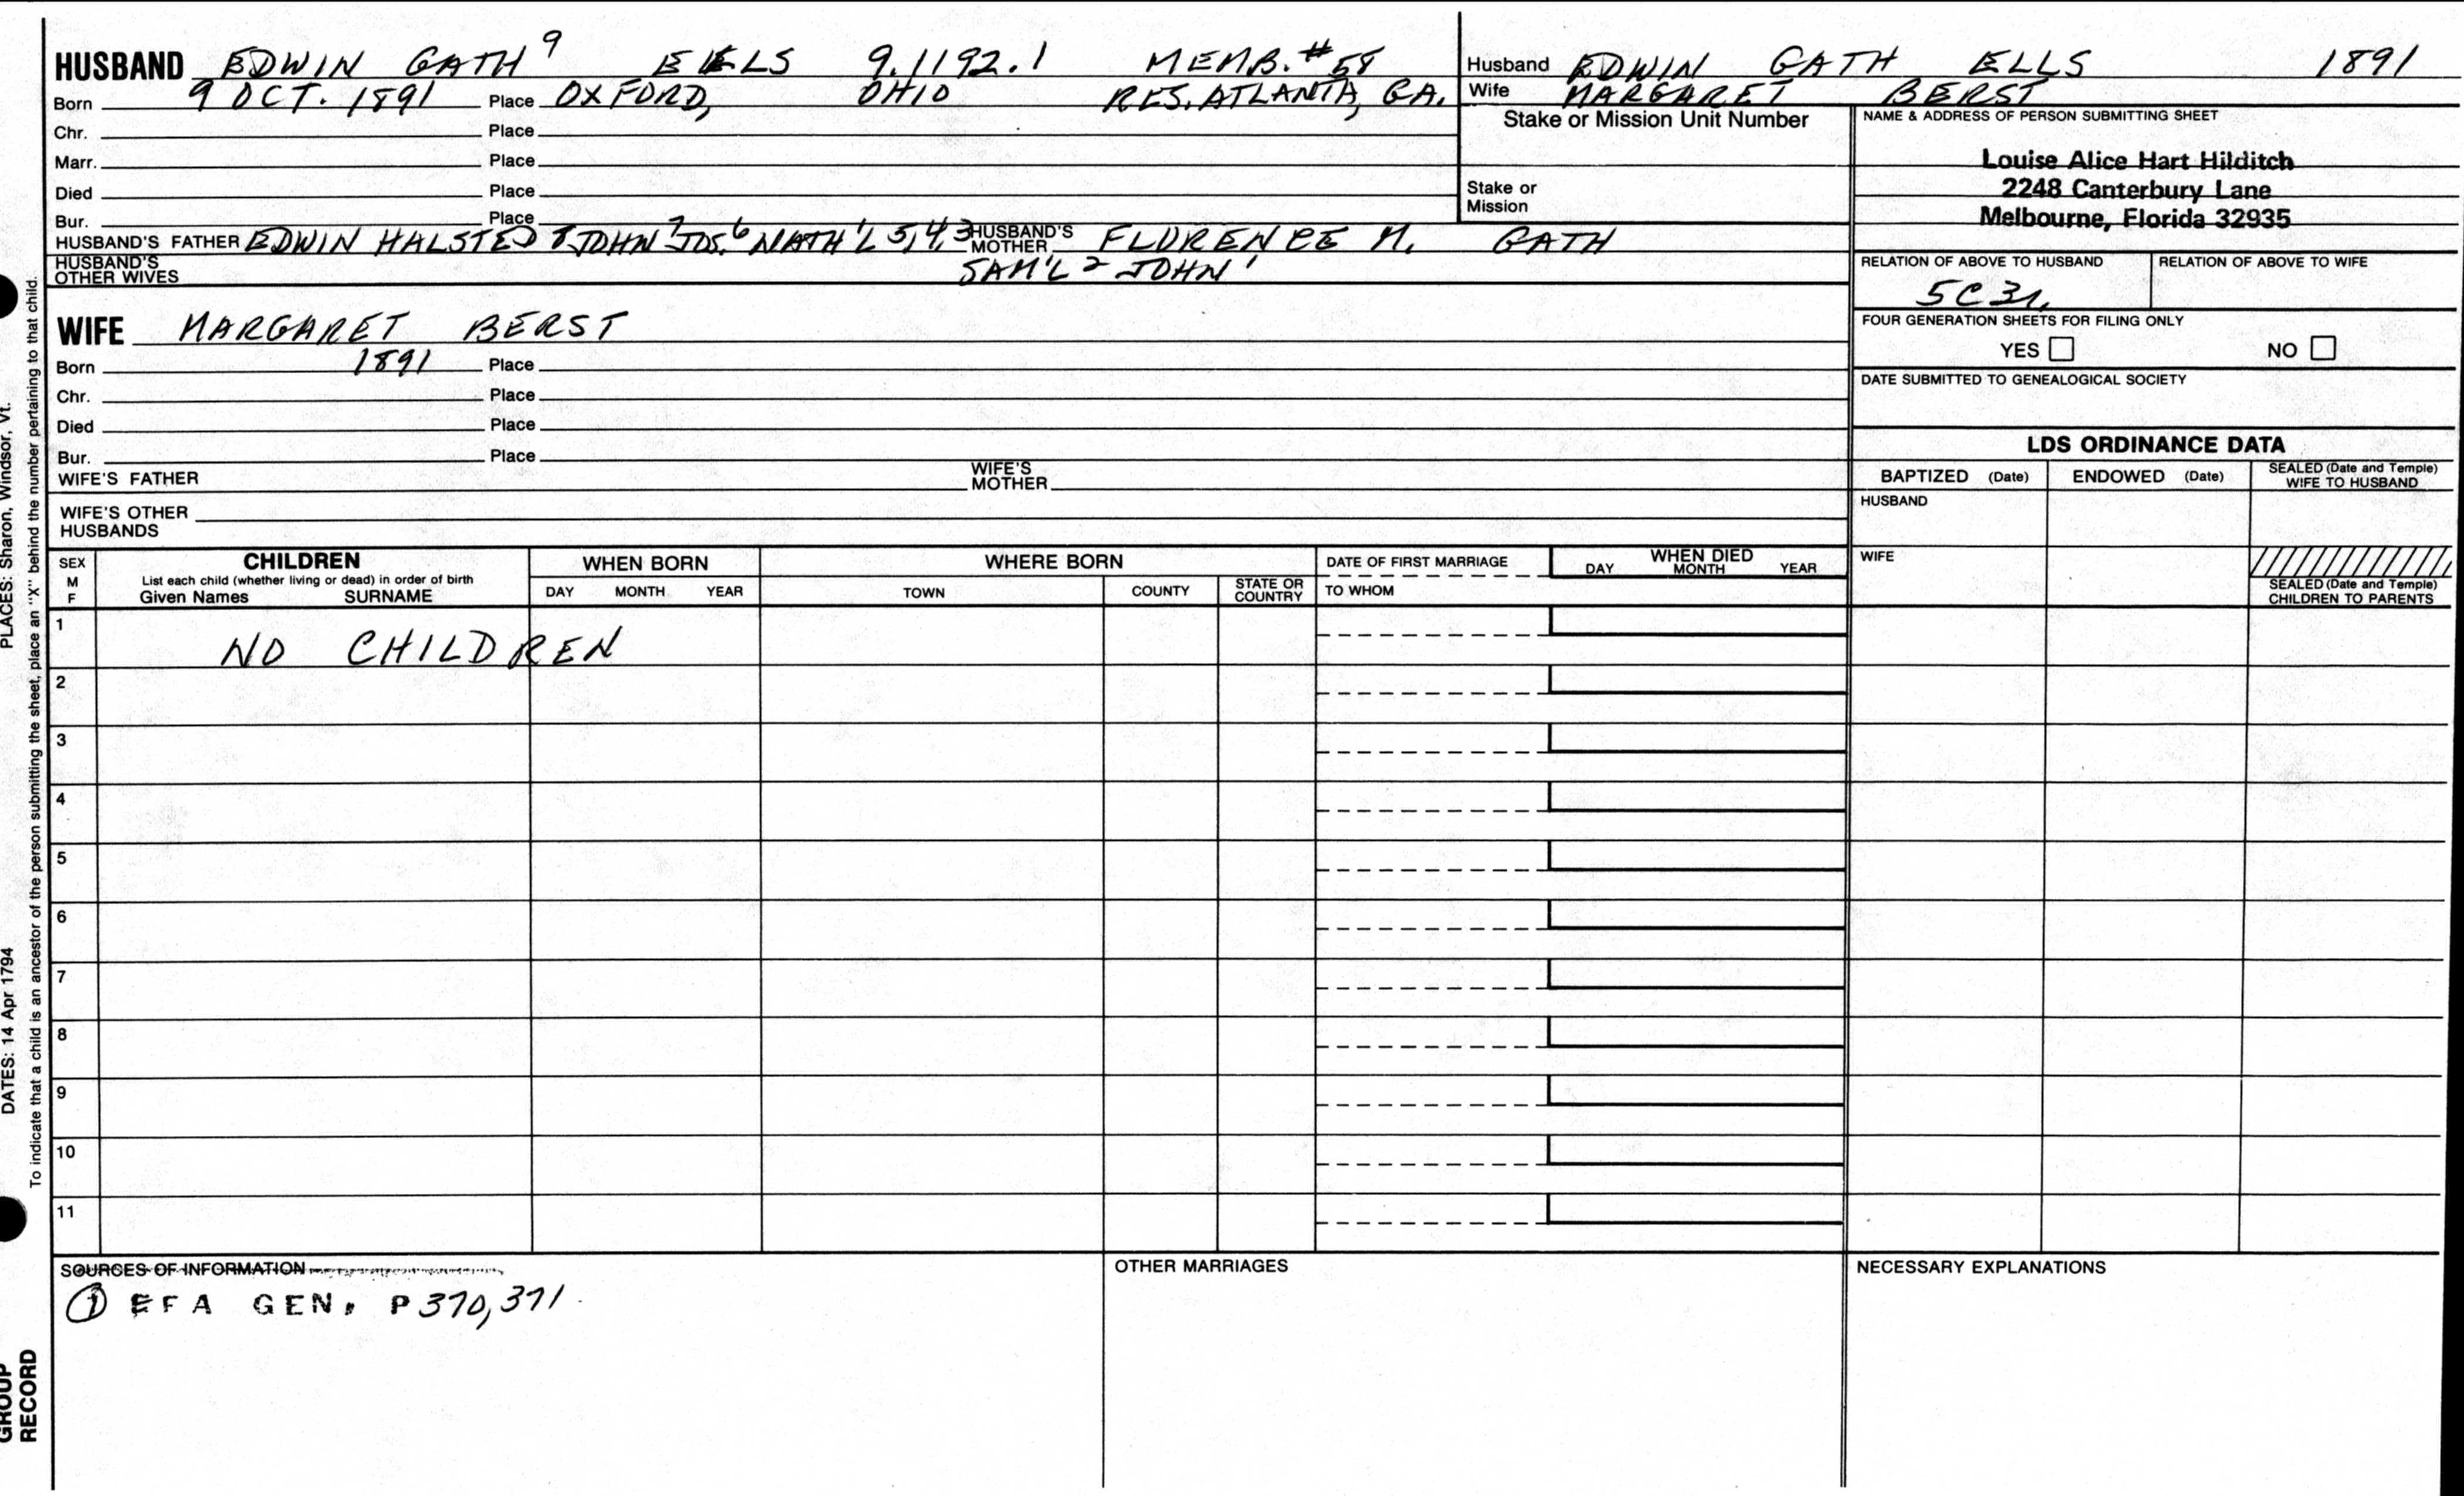 HUSBAND EDWIN GATH⁹ EELS 9.1192.1 MEMB. #58
Born 9 OCT. 1891 Place OXFORD, OHIO RES. ATLANTA, GA.
Chr. Place
Marr. Place
Died Place
Bur. Place
HUSBAND'S FATHER EDWIN HALSTED 8 JOHN 7 JOS. 6 NATH'L 5,4,3 HUSBAND'S MOTHER FLORENCE M. GATH
HUSBAND'S OTHER WIVES SAM'L 2 JOHN 1
Husband EDWIN GATH ELLS 1891
Wife MARGARET BERST
Stake or Mission Unit Number
Stake or
Mission
NAME & ADDRESS OF PERSON SUBMITTING SHEET
Louise Alice Hart Hilditch
2248 Canterbury Lane
Melbourne, Florida 32935
RELATION OF ABOVE TO HUSBAND RELATION OF ABOVE TO WIFE
5C3r.
FOUR GENERATION SHEETS FOR FILING ONLY
YES NO
DATE SUBMITTED TO GENEALOGICAL SOCIETY
WIFE MARGARET BERST
Born 1891 Place
Chr. Place
Died Place
Bur. Place
WIFE'S FATHER WIFE'S MOTHER
WIFE'S OTHER
HUSBANDS
LDS ORDINANCE DATA
BAPTIZED (Date) ENDOWED (Date) SEALED (Date and Temple) WIFE TO HUSBAND
HUSBAND
WIFE
SEALED (Date and Temple)
CHILDREN TO PARENTS
SEX M F
CHILDREN
List each child (whether living or dead) in order of birth
Given Names SURNAME
WHEN BORN
DAY MONTH YEAR
WHERE BORN
TOWN COUNTY STATE OR COUNTRY
DATE OF FIRST MARRIAGE
TO WHOM
WHEN DIED
DAY MONTH YEAR
1 NO CHILDREN
2
3
4
5
6
7
8
9
10
11
SOURCES OF INFORMATION
① EFA GEN. P 370, 371
OTHER MARRIAGES
NECESSARY EXPLANATIONS
PLACES: Sharon, Windsor, Vt.
DATES: 14 Apr 1794
To indicate that a child is an ancestor of the person submitting the sheet, place an "X" behind the number pertaining to that child.
GROUP
RECORD